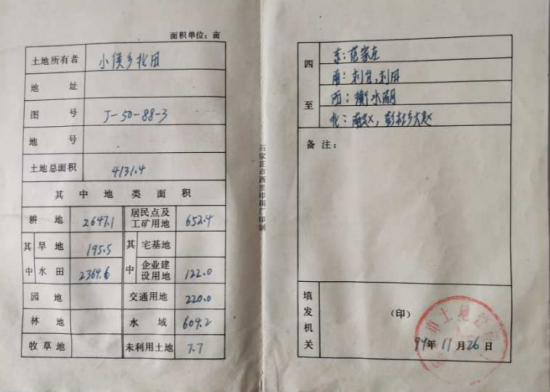 面积单位：亩
土地所有者 小侯乡北田
地址
图号 J-50-88-3
地号
土地总面积 4131.4
其中地类面积
耕地 2647.1 居民点及工矿用地 652.4
其中 旱地 195.5 其中 宅基地
水田 2369.6 企业建设用地 122.0
园地 交通用地 220.0
林地 水域 604.2
牧草地 未利用土地 7.7
四至
东：
南：
西：衡水湖
北：南赵，
备注：
填发机关
（印）
94年11月26日